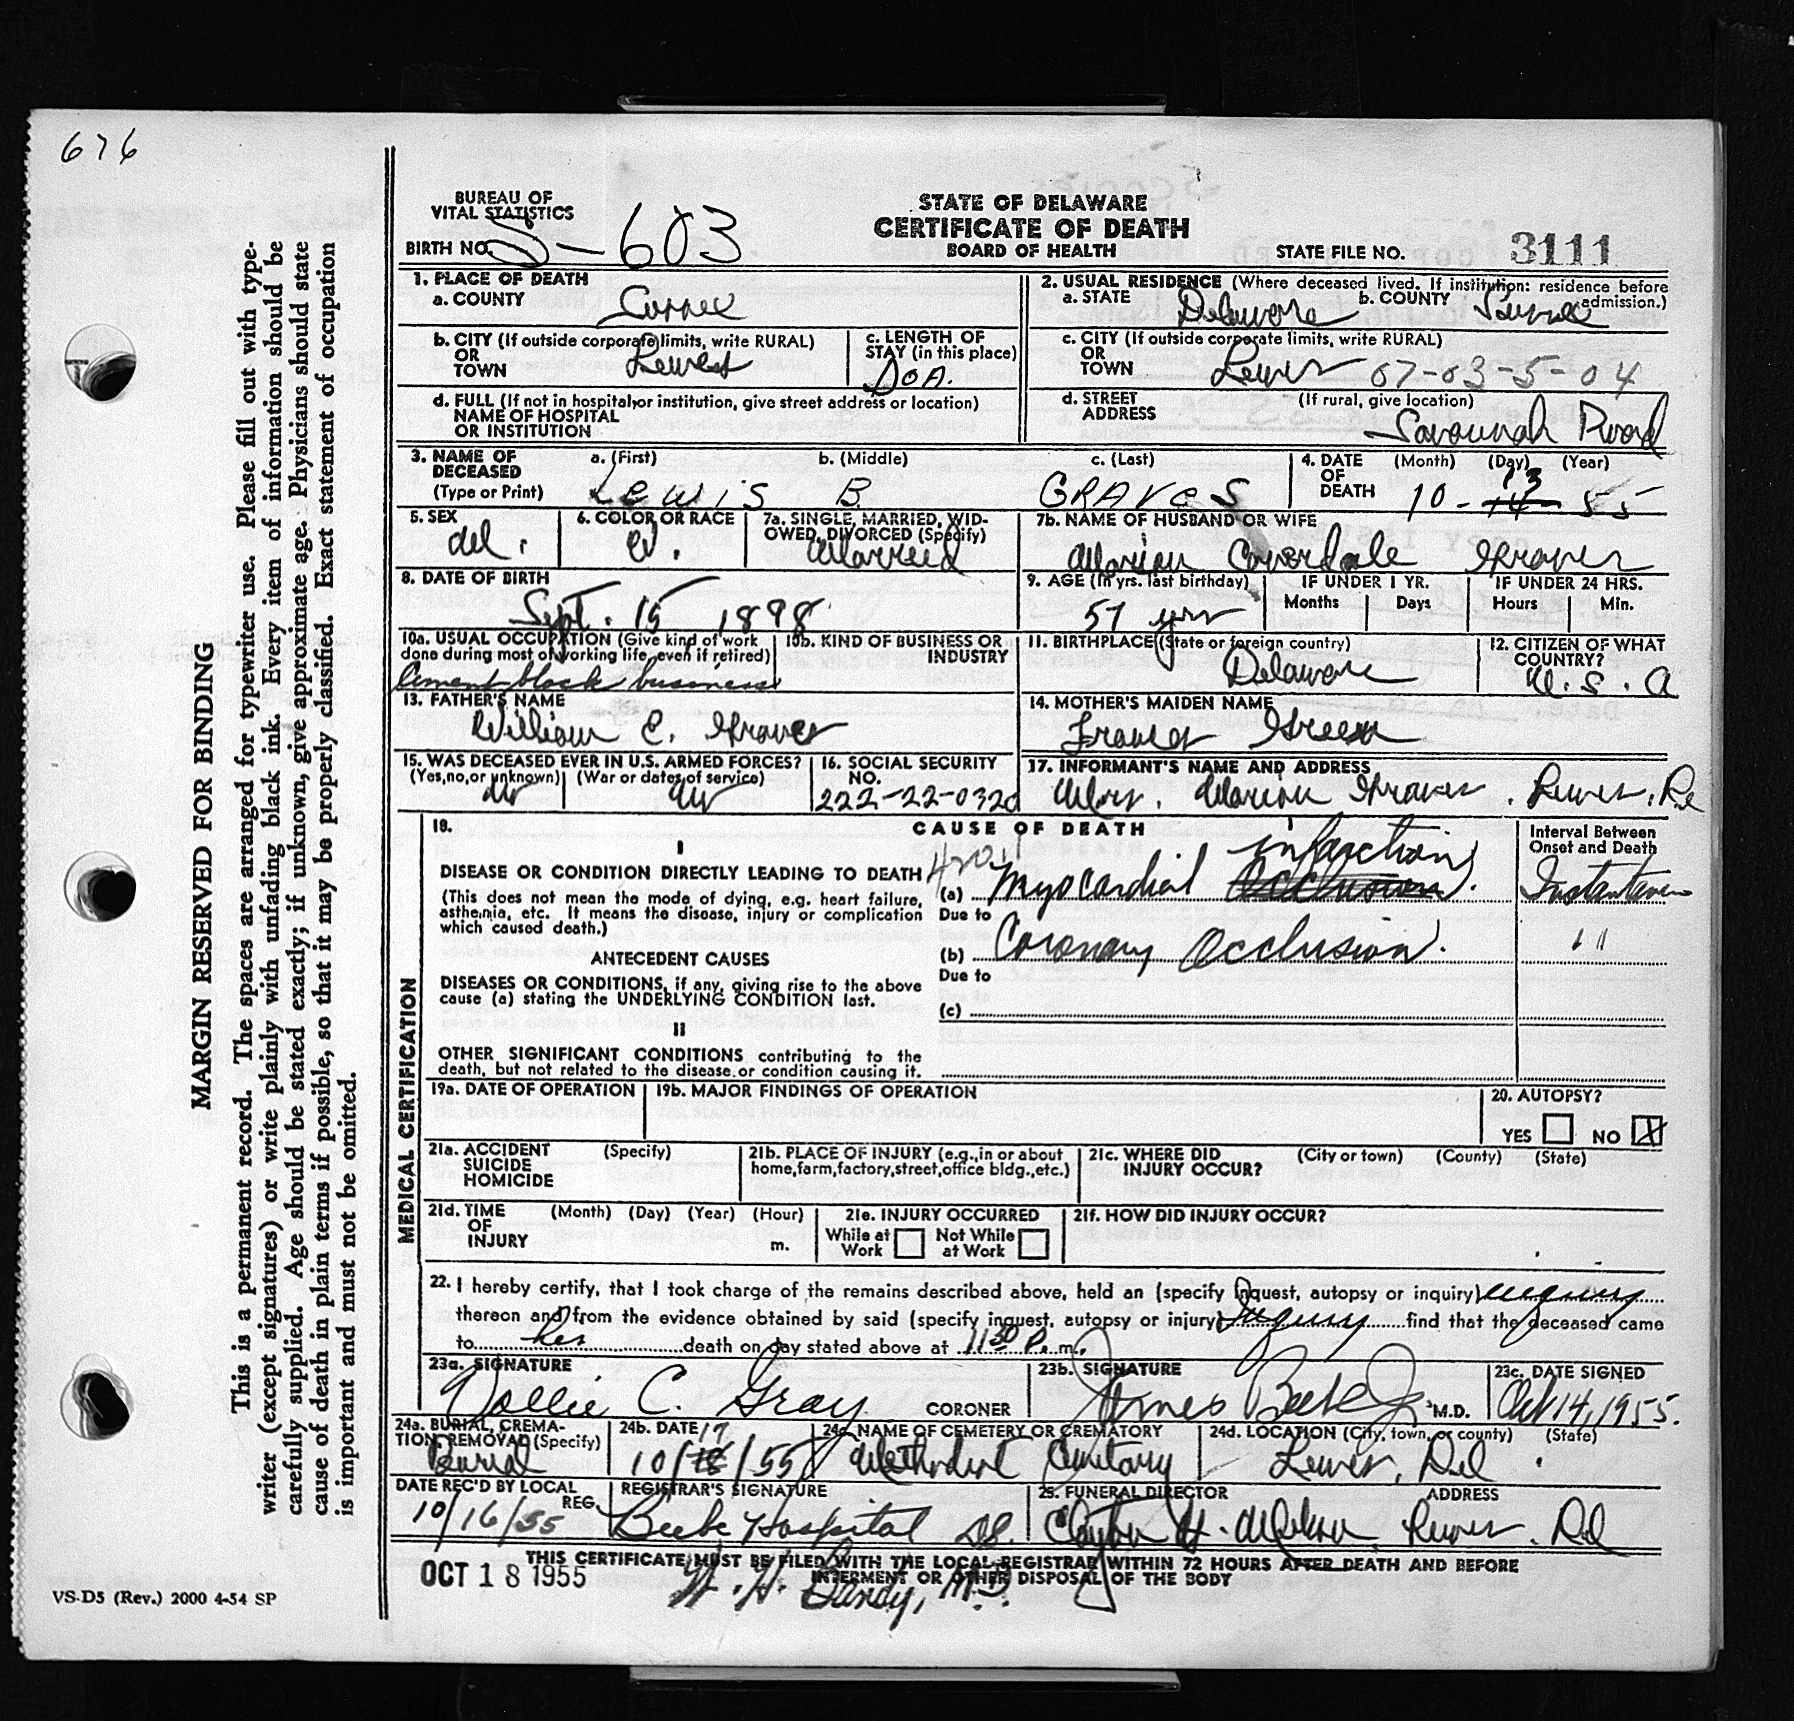 676
BUREAU OF
VITAL STATISTICS
STATE OF DELAWARE
CERTIFICATE OF DEATH
BOARD OF HEALTH
BIRTH NO. S-603
STATE FILE NO. 3111
1. PLACE OF DEATH
a. COUNTY
Sussex
2. USUAL RESIDENCE (Where deceased lived. If institution: residence before admission.)
a. STATE Delaware b. COUNTY Sussex
b. CITY (If outside corporate limits, write RURAL)
OR
TOWN Lewes
c. LENGTH OF
STAY (in this place)
DOA.
c. CITY (If outside corporate limits, write RURAL)
OR
TOWN Lewes 07-03-5-04
d. FULL (If not in hospital or institution, give street address or location)
NAME OF HOSPITAL
OR INSTITUTION
d. STREET (If rural, give location)
ADDRESS
Savannah Road
3. NAME OF
DECEASED
(Type or Print)
a. (First) b. (Middle) c. (Last)
Lewis B. GRAVES
4. DATE (Month) (Day) (Year)
OF
DEATH 10-14 13 55
5. SEX
Male.
6. COLOR OR RACE
W.
7a. SINGLE, MARRIED, WIDOWED, DIVORCED (Specify)
Married
7b. NAME OF HUSBAND OR WIFE
Marian Coverdale Graves
8. DATE OF BIRTH
Sept. 15 1898
9. AGE (In yrs. last birthday)
57 yrs
IF UNDER 1 YR.
Months Days
IF UNDER 24 HRS.
Hours Min.
10a. USUAL OCCUPATION (Give kind of work
done during most of working life, even if retired)
Cement block business
10b. KIND OF BUSINESS OR
INDUSTRY
11. BIRTHPLACE (State or foreign country)
Delaware
12. CITIZEN OF WHAT
COUNTRY?
U.S.A
13. FATHER'S NAME
William C. Graves
14. MOTHER'S MAIDEN NAME
Frances Green
15. WAS DECEASED EVER IN U.S. ARMED FORCES?
(Yes, no, or unknown) (War or dates of service)
No No
16. SOCIAL SECURITY
NO.
222-22-0320
17. INFORMANT'S NAME AND ADDRESS
Mrs. Marian Graves. Lewes, Del
18. CAUSE OF DEATH
Interval Between
Onset and Death
I
DISEASE OR CONDITION DIRECTLY LEADING TO DEATH
420.1
(a) Myocardial Occlusion infarction.
Instantaneous
(This does not mean the mode of dying, e.g. heart failure,
asthenia, etc. It means the disease, injury or complication
which caused death.)
Due to
(b) Coronary Occlusion.
" "
ANTECEDENT CAUSES
Due to
DISEASES OR CONDITIONS, if any, giving rise to the above
cause (a) stating the UNDERLYING CONDITION last.
(c)
II
OTHER SIGNIFICANT CONDITIONS contributing to the
death, but not related to the disease or condition causing it.
19a. DATE OF OPERATION
19b. MAJOR FINDINGS OF OPERATION
20. AUTOPSY?
YES NO X
21a. ACCIDENT (Specify)
SUICIDE
HOMICIDE
21b. PLACE OF INJURY (e.g., in or about
home, farm, factory, street, office bldg., etc.)
21c. WHERE DID (City or town) (County) (State)
INJURY OCCUR?
21d. TIME (Month) (Day) (Year) (Hour)
OF
INJURY m.
21e. INJURY OCCURRED
While at Work Not While at Work
21f. HOW DID INJURY OCCUR?
22. I hereby certify, that I took charge of the remains described above, held an (specify inquest, autopsy or inquiry) inquiry
thereon and from the evidence obtained by said (specify inquest, autopsy or injury) Inquiry find that the deceased came
to his death on day stated above at 11:30 P. m.
23a. SIGNATURE
Vollie C. Gray CORONER
23b. SIGNATURE
James Beebe Jr M.D.
23c. DATE SIGNED
Oct 14, 1955.
24a. BURIAL, CREMATION, REMOVAL (Specify)
Burial
24b. DATE
10/16 17/55
24c. NAME OF CEMETERY OR CREMATORY
Methodist Cemetary
24d. LOCATION (City, town, or county) (State)
Lewes, Del.
DATE REC'D BY LOCAL
REG.
10/16/55
REGISTRAR'S SIGNATURE
Beebe Hospital
25. FUNERAL DIRECTOR ADDRESS
Lewes. Del
THIS CERTIFICATE MUST BE FILED WITH THE LOCAL REGISTRAR WITHIN 72 HOURS AFTER DEATH AND BEFORE
INTERMENT OR OTHER DISPOSAL OF THE BODY
OCT 18 1955
MEDICAL CERTIFICATION
MARGIN RESERVED FOR BINDING
This is a permanent record. The spaces are arranged for typewriter use. Please fill out with type-
writer (except signatures) or write plainly with unfading black ink. Every item of information should be
carefully supplied. Age should be stated exactly; if unknown, give approximate age. Physicians should state
cause of death in plain terms if possible, so that it may be properly classified. Exact statement of occupation
is important and must not be omitted.
VS-D5 (Rev.) 2000 4-54 SP